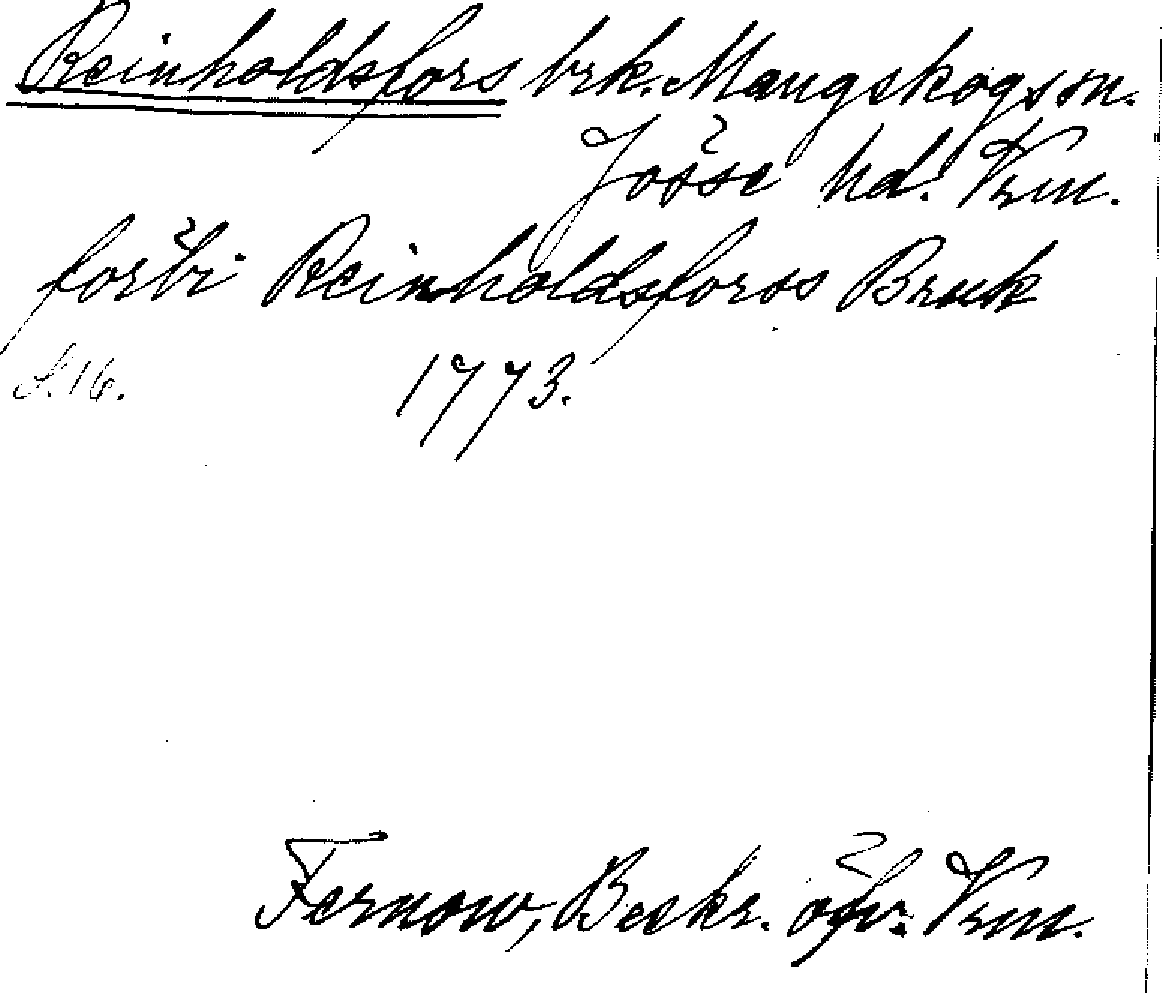 Reinholdsfors brk. Mangskogs sn.
Jösse hd. Vrm.
förbi Reinholdsforss Bruk
S. 16. 1773.
Fernow, Beskr. öfv. Vrm.